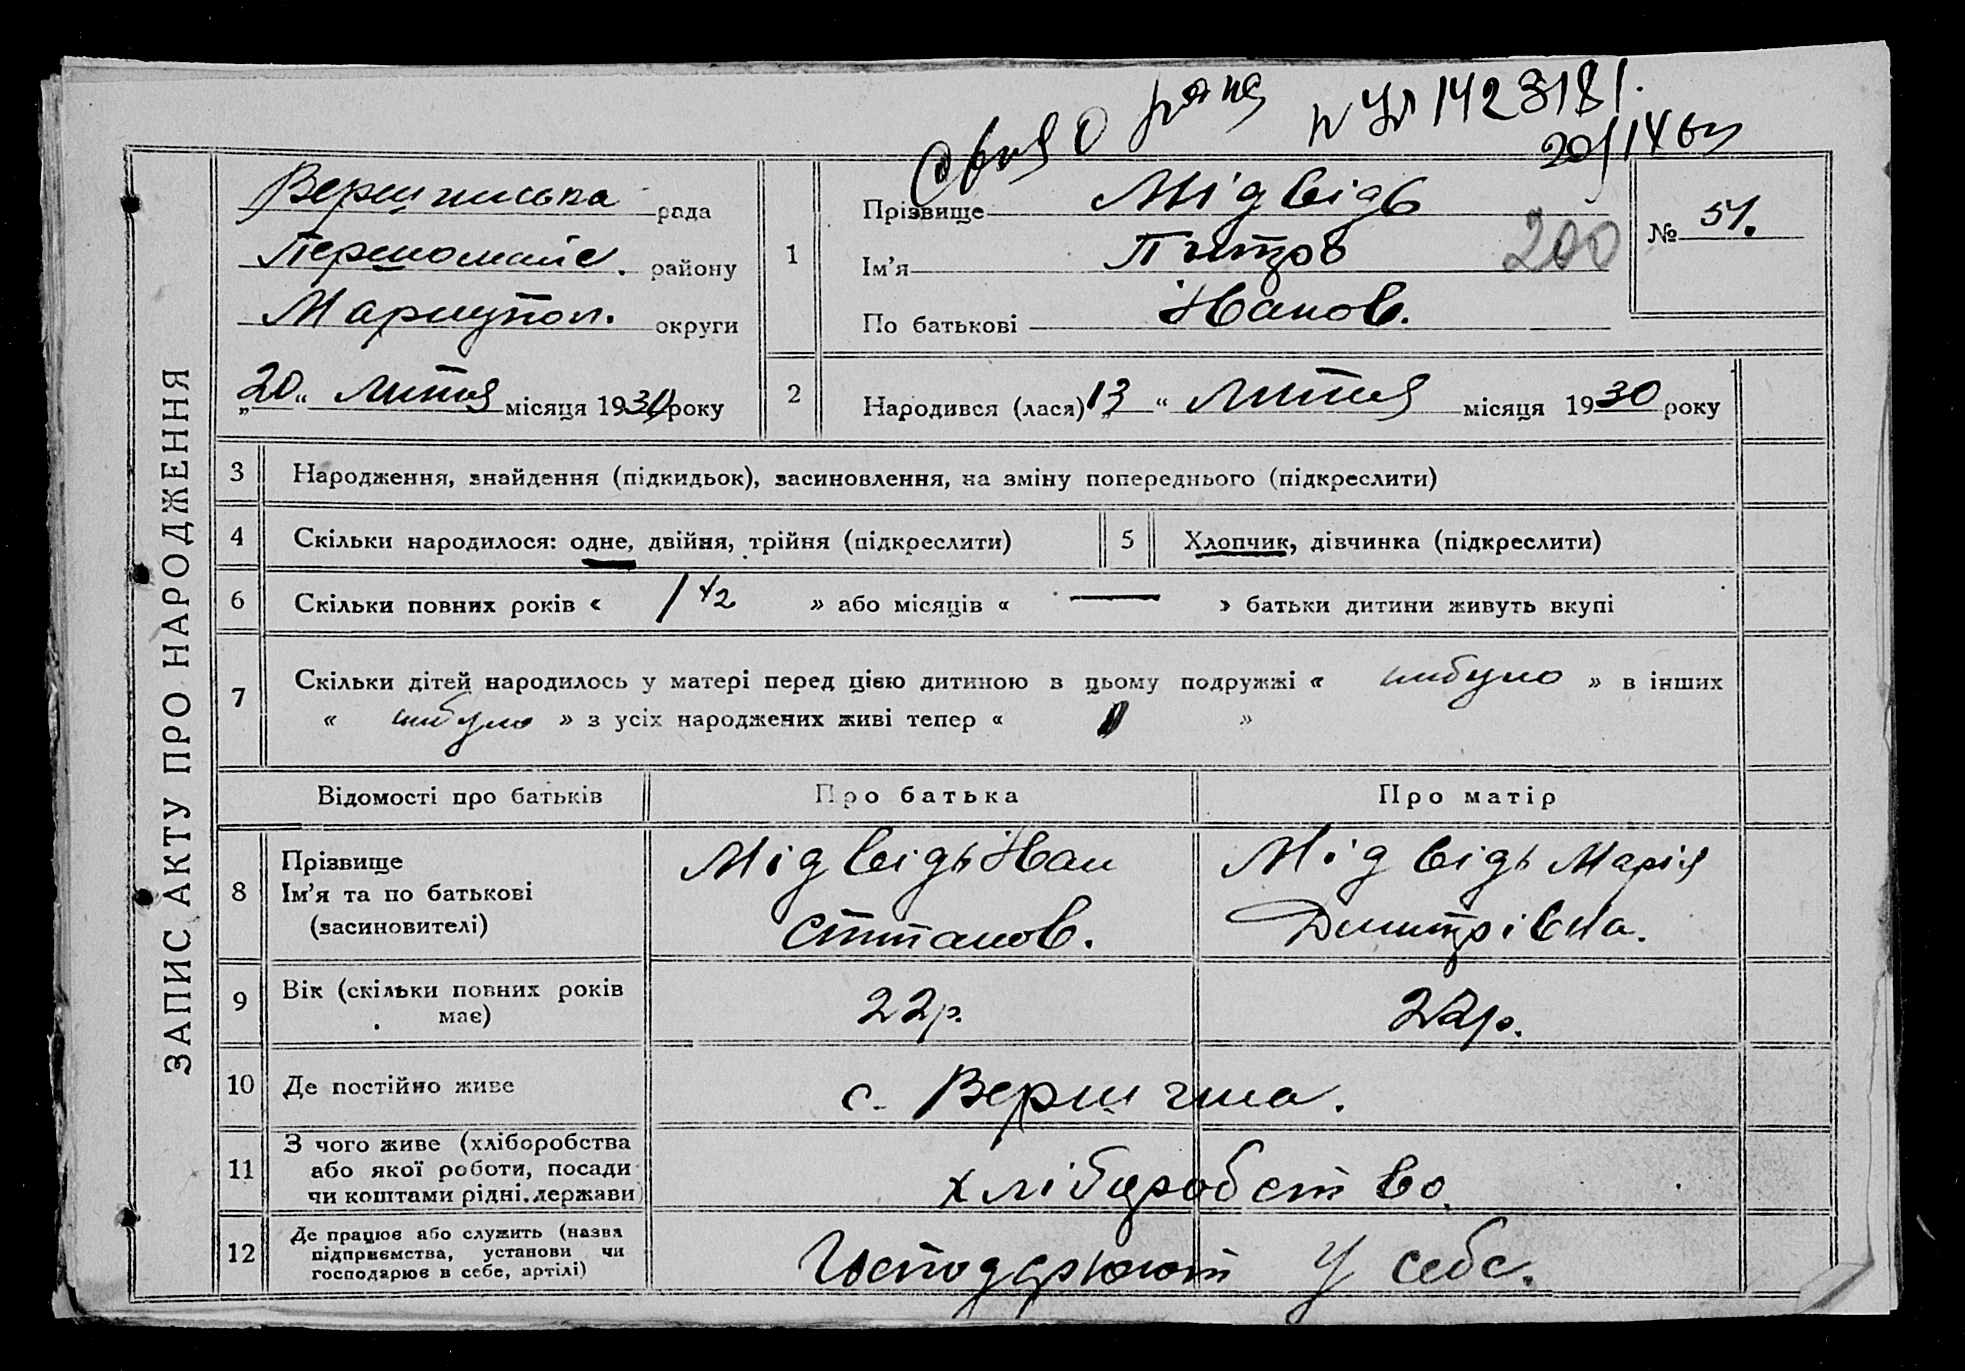 № 1423181.
ЗАПИС АКТУ ПРО НАРОДЖЕННЯ
рада
Першомайс. району
Маріупол. округи
„20“ лютня місяця 1930 року
1
Прізвище Мідвідь
Ім'я Питро
По батькові Іванов.
200
№ 51.
2
Народився (лася) 13 “ лютня місяця 1930 року
3 Народження, знайдення (підкидьок), засиновлення, на зміну попереднього (підкреслити)
4 Скільки народилося: одне, двійня, трійня (підкреслити) 5 Хлопчик, дівчинка (підкреслити)
6 Скільки повних років « 1 1/2 » або місяців « — » батьки дитини живуть вкупі
7 Скільки дітей народилось у матері перед цією дитиною в цьому подружжі « нибуло » в інших
« нибуло » з усіх народжених живі тепер « »
Відомості про батьків Про батька Про матір
8 Прізвище
Ім'я та по батькові
(засиновителі)
Мідвідь Іван
Ститанов.
Мідвідь Марія
Димитрівна.
9 Вік (скільки повних років
має)
22р. 22р.
10 Де постійно живе с. Вершина.
11 З чого живе (хліборобства
або якої роботи, посади
чи коштами рідні, держави)
хліборобство.
12 Де працює або служить (назва
підприємства, установи чи
господарює в себе, артілі)
Господарюють у себе.